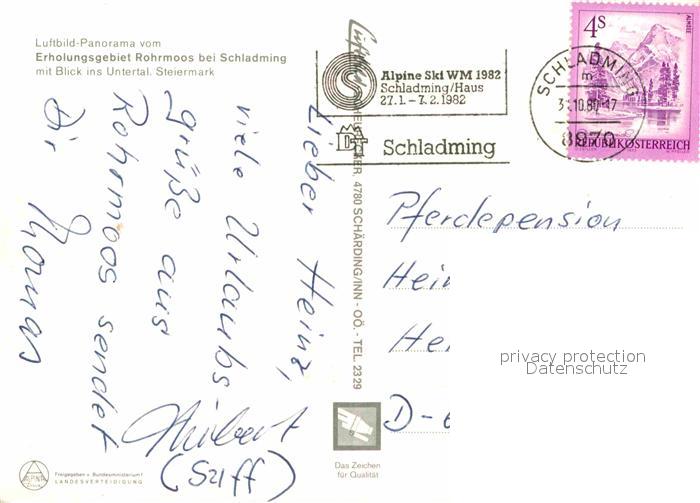 Luftbild-Panorama vom
Erholungsgebiet Rohrmoos bei Schladming
mit Blick ins Untertal. Steiermark
Lieber Heinz,
viele Urlaubs
grüße aus
Rohrmoos sendet
Dir Thomas
(Sziff)
Freigegeben v. Bundesministerium f.
LANDESVERTEIDIGUNG
ALPINA
4780 SCHÄRDING/INN - OÖ. - TEL. 2329
Das Zeichen
für Qualität
Alpine Ski WM 1982
Schladming/Haus
27.1. – 7.2.1982
Schladming
SCHLADMING
8970
4S
ALMSEE
REPUBLIK ÖSTERREICH
Pferdepension
Hei
He
D-
privacy protection
Datenschutz